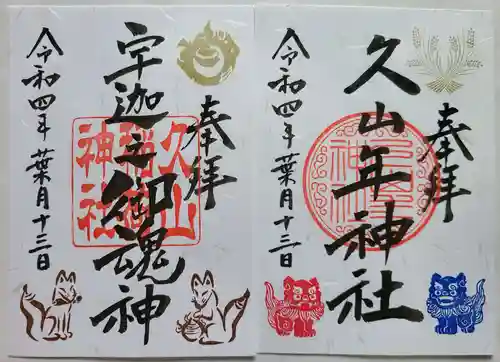 奉拝
宇迦之御魂神
久山稲荷神社
令和四年 葉月十三日
奉拝
久山年神社
令和四年 葉月十三日